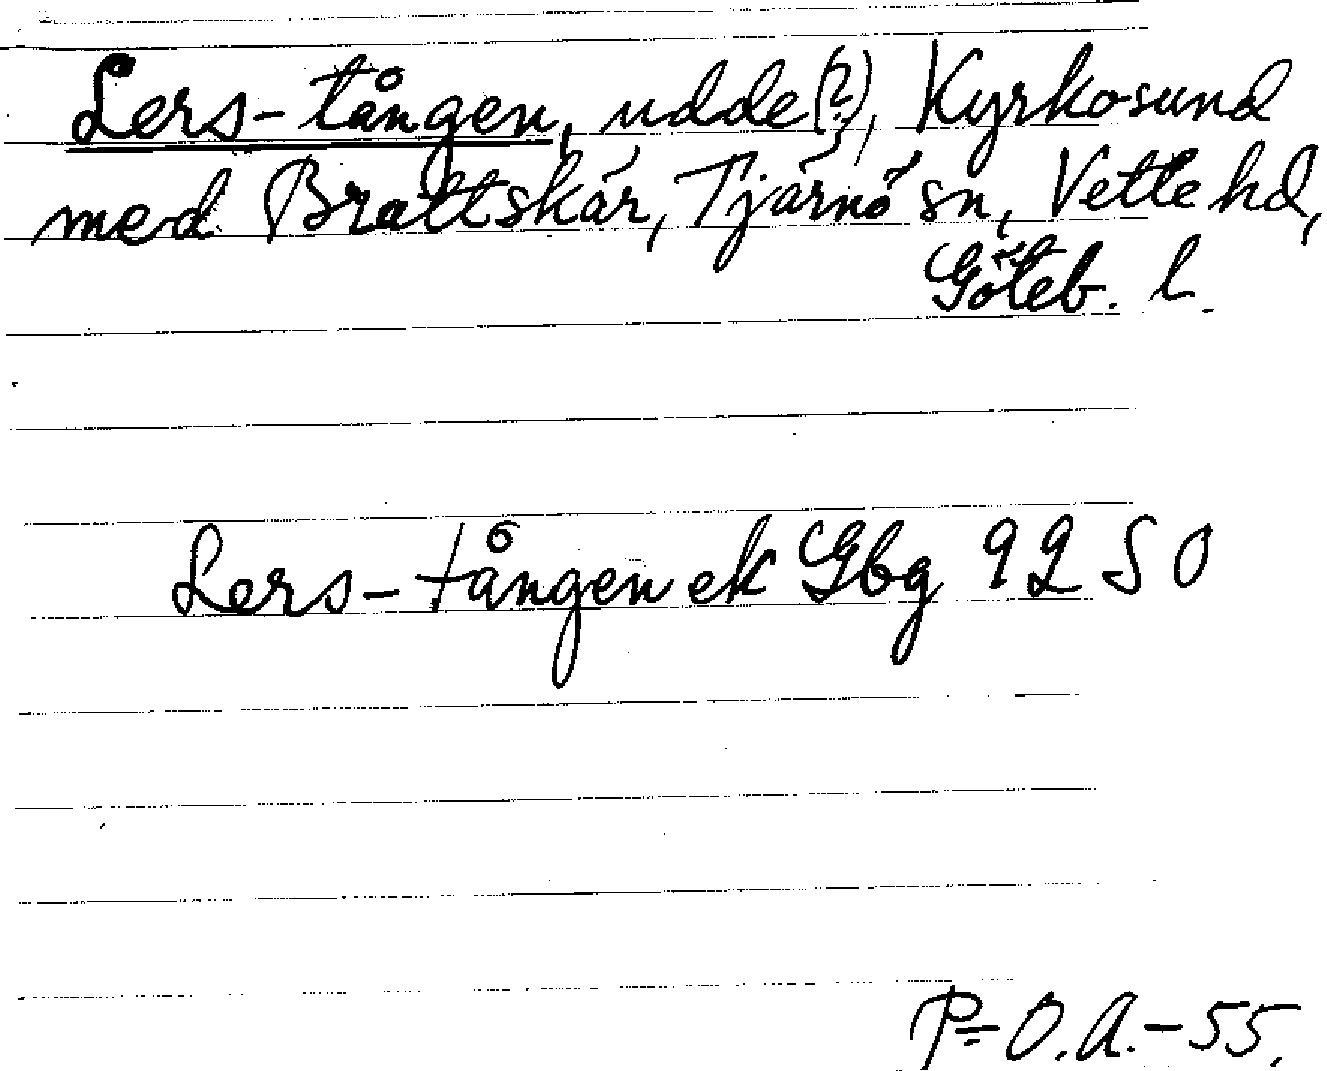 Lers-tången, udde(?), Kyrkosund
med Brattskär, Tjärnö sn, Vette hd,
Göteb. l.
Lers-tången ek Gbg 92 SO
P= O.A.-55.